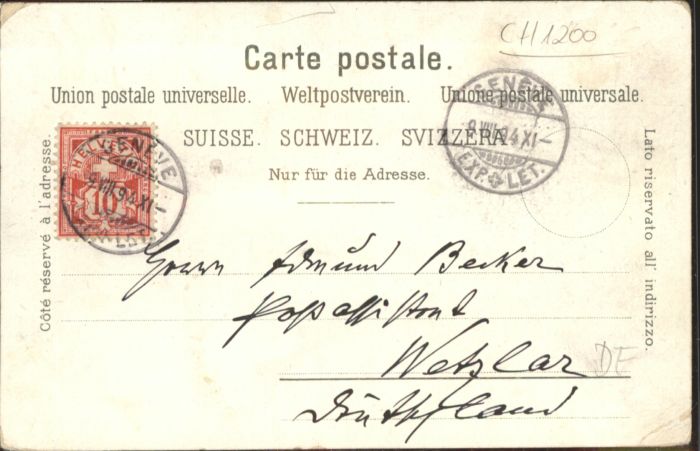 CH1200
Carte postale.
Union postale universelle. Weltpostverein. Unione postale universale.
SUISSE. SCHWEIZ. SVIZZERA.
Nur für die Adresse.
Côté réservé à l'adresse.
Lato riservato all' indirizzo.
HELVETIA
10
GENÈVE
9.VIII.94.XI-
EXP. LET.
GENÈVE
9.VIII.94.XI-
EXP. LET.
Herrn Edmund Becker
Postassistent
Wetzlar
DE
Deutschland